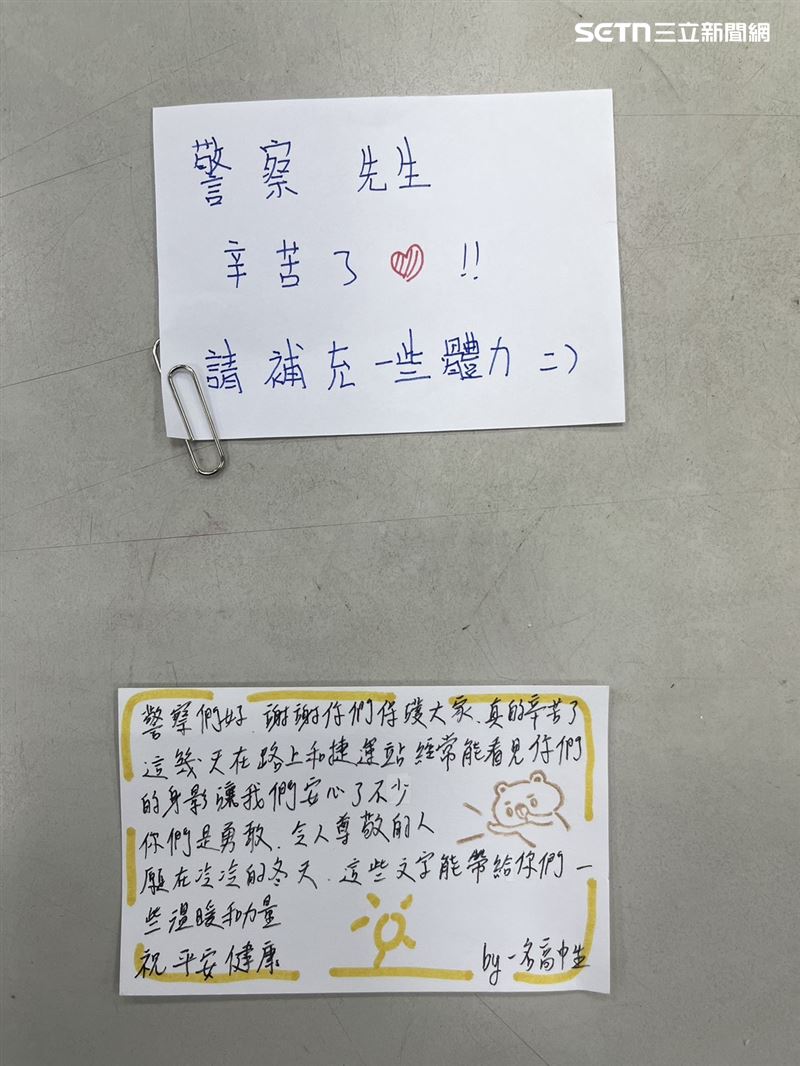 SETN三立新聞網
警察 先生
辛苦了!!
請補充一些體力 =)
警察們好.謝謝你們保護大家.真的辛苦了
這幾天在路上和捷運站經常能看見你們
的身影讓我們安心了不少
你們是勇敢.令人尊敬的人
願在冷冷的冬天.這些文字能帶給你們一
些溫暖和力量
祝平安健康
by 一名高中生